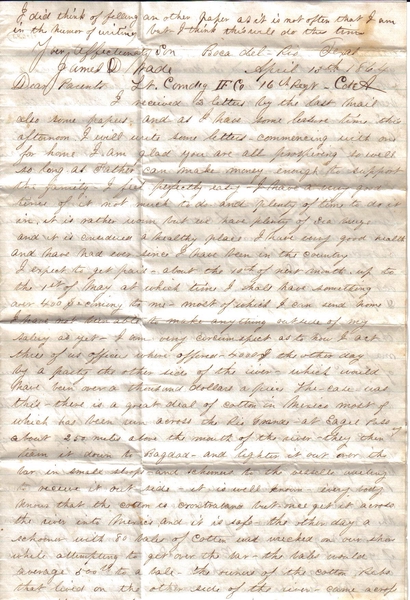 I did think of filling an other paper as it is not often that I am
in the humor of writing but I think this will do this time
Your Affectionate Son Boca del Rio Texas
James D Wade April 13th 1864
Dear Parents Lt Comdg Co 16th Regt
I received 3 letters by the last mail
also some papers and as I have some leisure time this
afternoon I will write some letters commencing with one
for home I am glad you are all prospering so well
so long as Father can make money enough to support
the family I feel perfectly easy I have a very good
time of it not much to do and plenty of time to do it
in it is rather warm but we have plenty of Sea
and it is considered a healthy place I have very good health
and have had ever since I have been in the country
I expect to get paid about the 10th of next month up to
the 1st of May at which time I shall have something
over 400 $ coming to me most of which I can send home
I have not been able to make any thing outside of my
salary as yet I am very circumspect as to how I act
three of us officers were offered 4000 $ the other day
by a party the other side of the river which would
have been over a thousand dollars a piece The case was
this there is a great deal of cotton in Mexico most of
which has been run across the Rio Grande at Eagle Pass
about 250 miles above the mouth of the river they then
team it down to Bagdad and lighter it out over the
bar in small sloops and schooners to the vessels waiting
to receive it out side it is well known every body
knows that the cotton is contraband but once get it across
the river into Mexico and it is safe the other day a
schooner with 80 bales of cotton was wrecked on our shore
while attempting to get over the bar the bales would
average 500 lb to a bale the owner of the cotton
that lived on the other side of the river came across